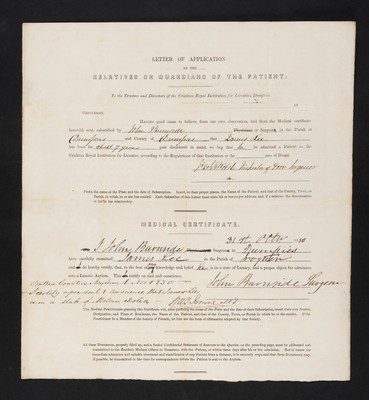 LETTER OF APPLICATION
BY THE
RELATIVES OR GUARDIANS OF THE PATIENT.
To the Trustees and Directors of the Crichton Royal Institution for Lunatics, Dumfries.
GENTLEMEN,
Having good cause to believe, from our own observation, and from the Medical certificate
herewith sent, subscribed by John Burnside Physician or Surgeon in the Parish of
Dumfries and County of Dumfries that James Lee
has been for about 7 years past deranged in mind, we beg that he be admitted a Patient in the
Crichton Institution for Lunatics, according to the Regulations of that Institution in the rate of Board.
Inspector of Poor
Prefix the name of the Place and the date of Subscription. Insert, in their proper places, the Name of the Patient, and that of the County, Town, or
Parish, in which he or she has resided. Each Subscriber of this Letter must state his or her proper address, and, if a relative, the denomination
of his or her relationship.
MEDICAL CERTIFICATE.
31st Octr
I John Burnside Surgeon in Dumfries
have carefully examined James Lee in the Parish of
and I do hereby certify, that, to the best of my knowledge and belief, he is in a state of Lunacy, and a proper object for admission
into a Lunatic Asylum. This I certify on soul and conscience.
John Burnside Surgeon
I certify upon soul & conscience that James Lee
in a state of Melancholia
The Medical Practitioner granting this Certificate will, after prefixing the name of the Place and the date of Subscription, insert
Designation, and Place of Residence, the Name of the Patient, and that of the County, Town, or Parish in which he or she resides. If the
Practitioner be a Member of the Society of Friends, he will use the form of affirmation adopted by that Society.
All these Documents, properly filled up, and a Sealed Confidential Statement of Answers to the Queries on the preceding page, must be addressed and
transmitted to the Resident Medical Officer or Treasurer, with the Patient, or within three days after his or her admission. But to ensure the
immediate admission and suitable treatment and classification of any Patient from a distance, it is earnestly requested that these Documents may,
if possible, be transmitted in due time for correspondence before the Patient is sent to the Asylum.